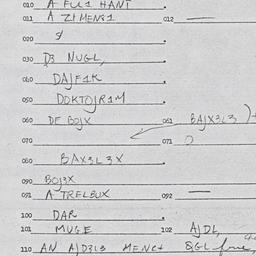 010 A FUL1 HANT
011 A ZIMENS1 012 —
020
030 D3 NUGL,
040 DAJF1K
050 DOKTOJR1M
060 DE BOJX 061 BAJX3L3
070 071
080 BAX3L3X
090 BOJ3X
091 A TRELBUX 092 —
100 DAR
101 MUGE 102 AJDL,
110 AN AJD3L3 MENC+ &GL